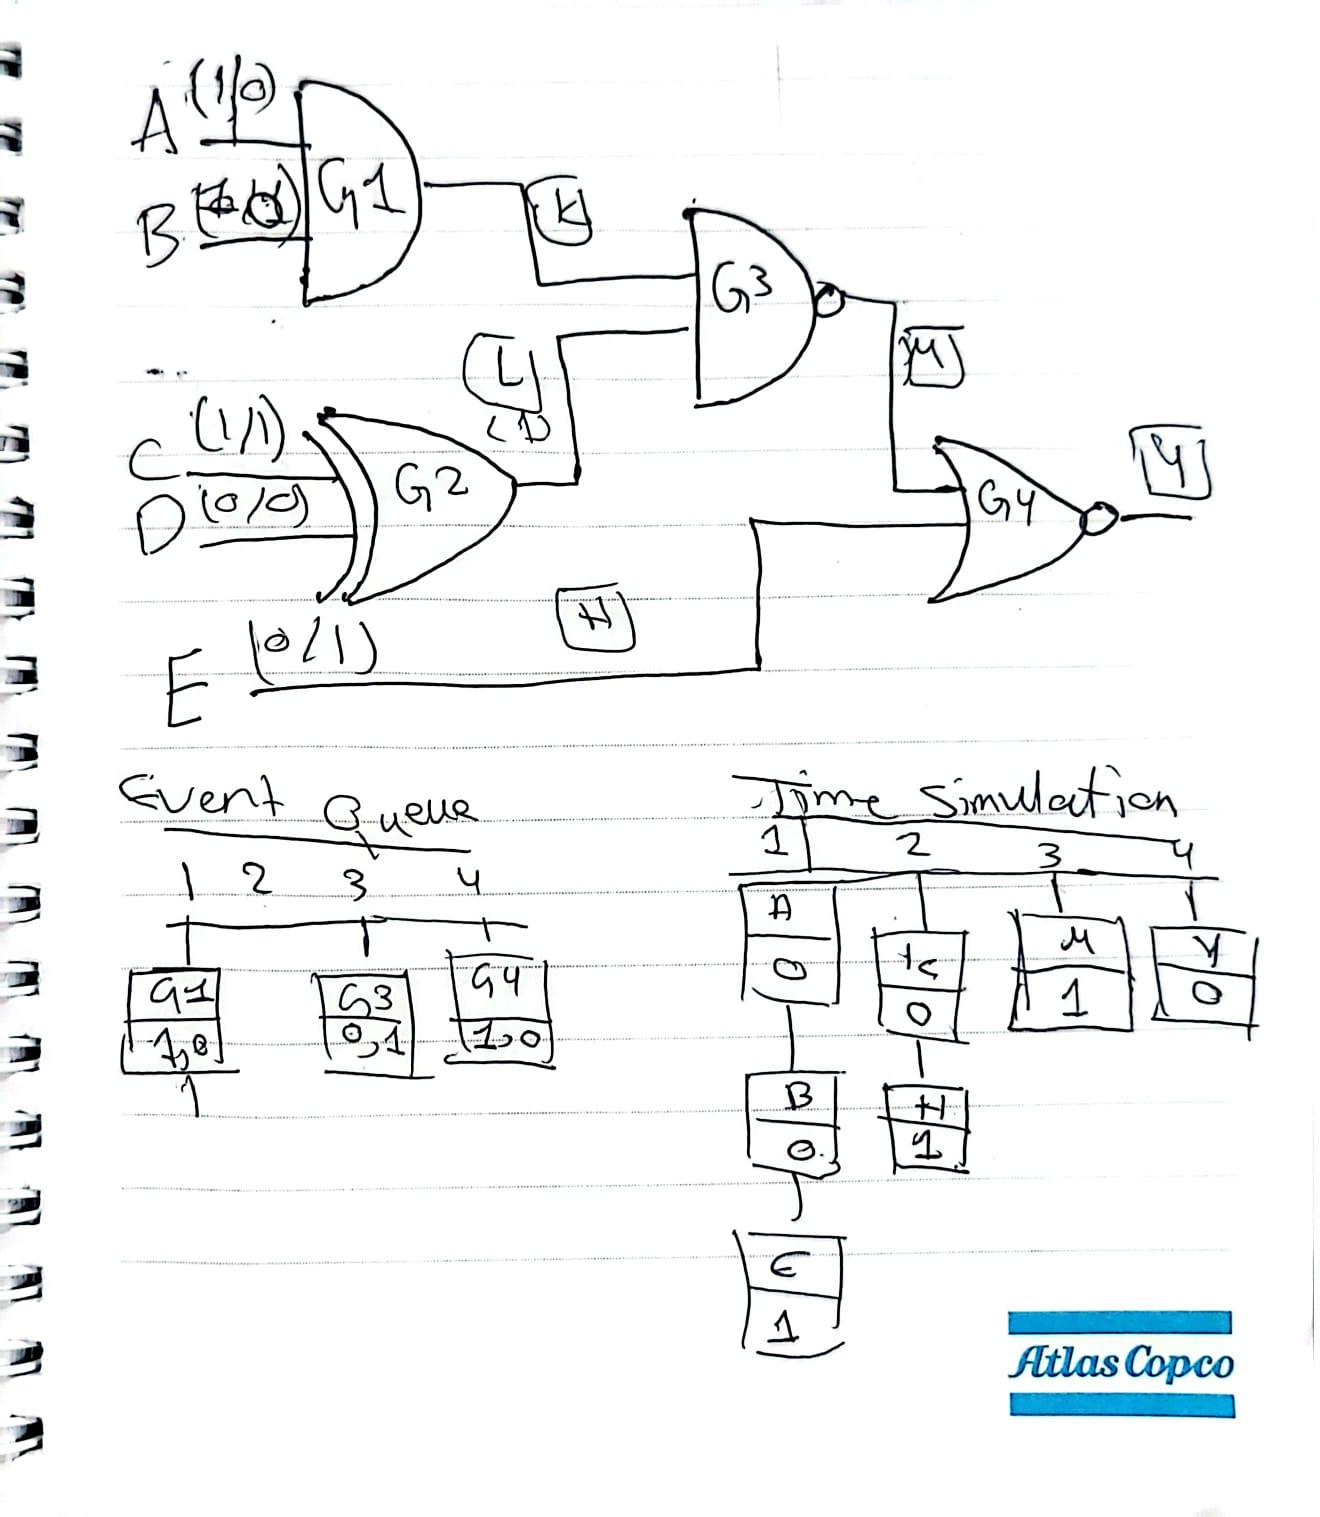 A (1/0)
B
G1
K
G3
L
(1)
M
C (1/1)
D (0/0)
G2
G4
Y
H
E (0/1)
Event Queue
1 2 3 4
G1 G3 G4
1,0 0,1 1,0
1
Time Simulation
1 2 3 4
A K M Y
0 0 1 0
B H
0 1
E
1
Atlas Copco